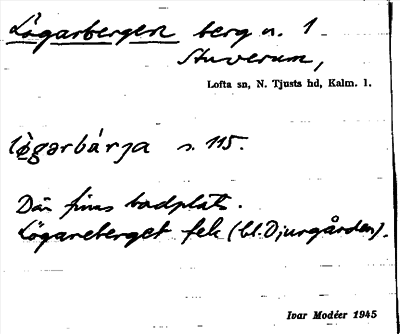 Lögarbergen berg n. 1
Stuverum,
Lofta sn, N. Tjusts hd, Kalm. l.
lø̀gərbárja s. 115.
Där finns badplats.
Lögareberget fel (bl. Djurgården).
Ivar Modéer 1945